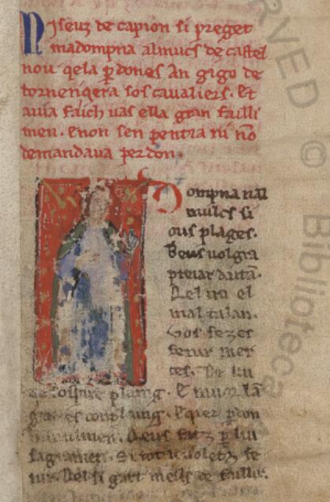 Niseuz de capion si preget
madompna almucs de castel
nou qela perdones An gigo de
tornen qera sos cavaliers. Et
avia faich vas ella gran failli
men. Enon sen pentia ni no
demandava perdon.
Dompna nal
mucs si
ous plages.
Beus volgra
preiar daitā.
Qel ira el
mal talan.
Vos fezes
fenir mer
ces. De lui
qe sospir' e plaing. E muor lā
guēs es complaing. E quer pdon
humilmen. Qeus fatz p lui
sagramen. Si tot li voletz fe
nir. Qel si gart meils de faillir.
RVED © Biblioteca